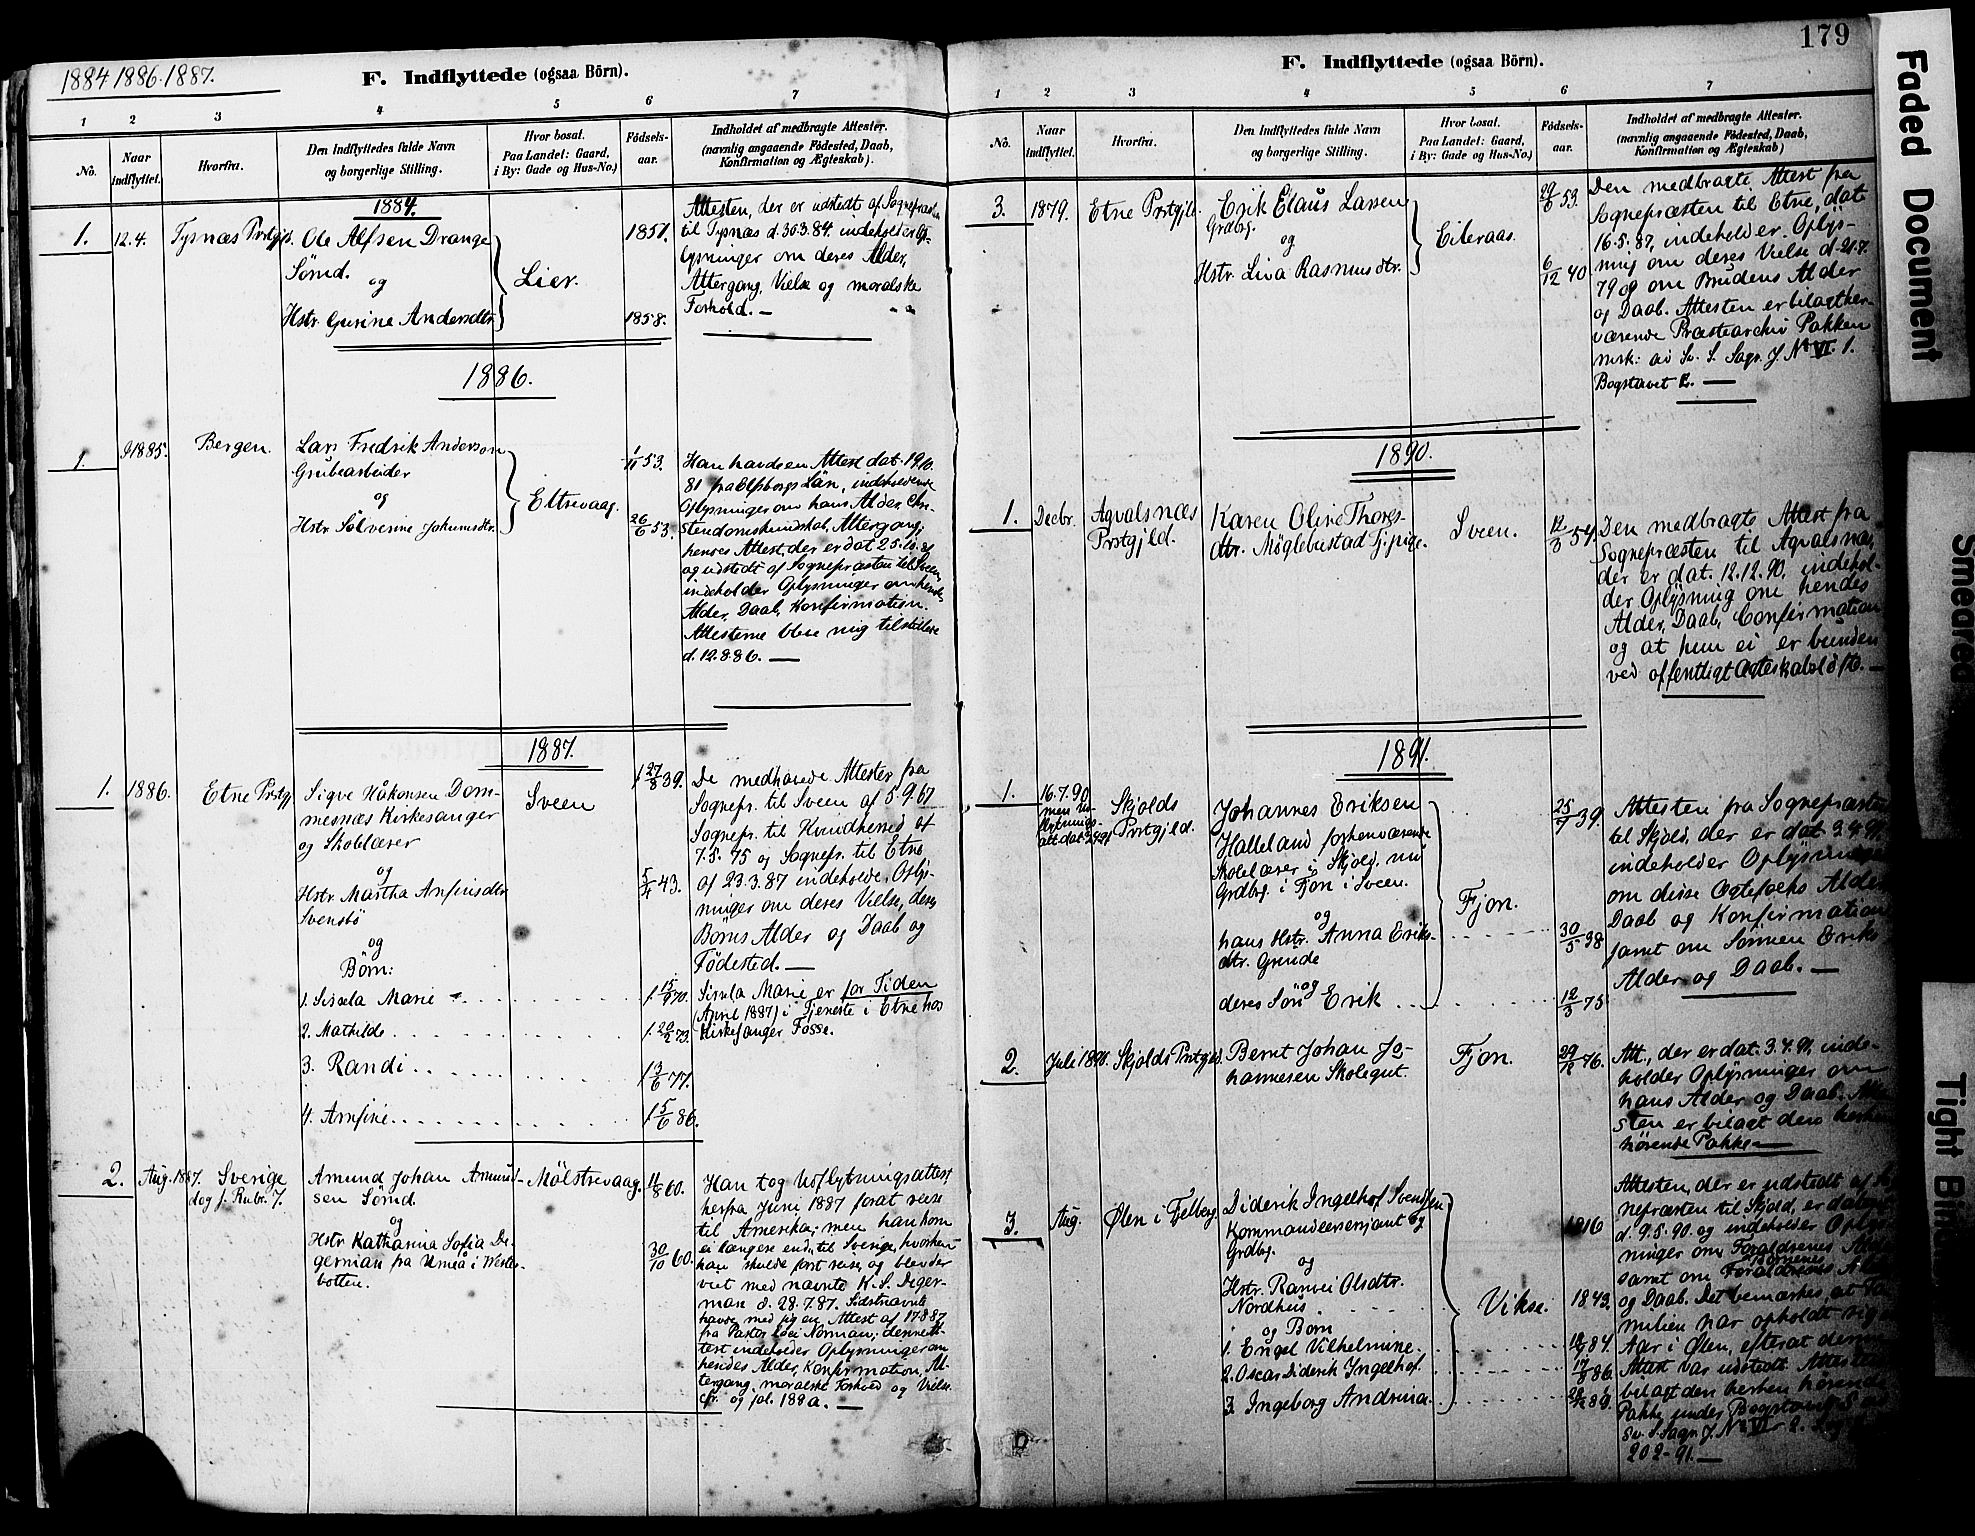 1884 1886. 1887.
F. Indflyttede (ogsaa Börn).
1 2 3 4 5 6 7
No.
Naar indflyttet.
Hvorfra.
Den Indflyttedes fulde Navn
og borgerlige Stilling.
Hvor bosat.
Paa Landet: Gaard,
i By: Gade og Hus-No.)
Födsels-
aar.
Indholdet af medbragte Attester.
(navnlig angaaende Födested, Daab,
Konfirmation og Ægteskab).
1884.
1. 12.4. Tysnæs Prstgjld.
Ole Alfsen Drange
Sömd.
og
Hstr. Gurine Andersdtr.
Lier.
1851.
1858.
Attesten, der er udstedt af Sognepræsten
til Tysnæs d. 30.3.84. indeholder Op-
lysninger om deres Alder,
Altergang, Vielse og moralske
Forhold. —
1886.
1. 1885. Bergen.
Lars Fredrik Anderson
Grubearbeider
og
Hstr. Sölverine Johannsdtr.
Eltrevaag.
1/11 53.
26/6 53.
Han havde en Attest dat. 19.10.
81 fra Elfsborgs Län, indeholdende
Oplysninger om hans Alder, Chri-
stendomskundskab, Altergang;
hendes Attest, der er dat 25.10.
og udstedt af Sognepræsten til Sveen,
indeholder Oplysninger om hendes
Alder, Daab, Konfirmation.
Attesterne bleve mig tilstillede
d. 12.8.86. —
1887.
1. 1886. Etne Prstgj.
Sigve Håkonsen Dom-
mesnæs Kirkesanger
og Skolelærer
og
Hstr. Martha Arnfinsdtr
Svensbö
og
Börn:
1. Sissela Marie
2. Mathilde
3. Randi
4. Arnfine
Sveen
27/8 39.
43.
15/9 70.
73.
13/6 77.
5/6 86.
De medhavde Attester fra
Sognepr. til Sveen af 5.9.67
Sognepr. til Kvindherred af
7.5.75 og Sognepr. til Etne
af 23.3.87 indeholde, Oplys-
ninger om deres Vielse, deres
Börns Alder og Daab og
Födested. —
Sissela Marie er for Tiden
(April 1887) i Tjeneste i Etne hos
Kirkesanger Fosse.
2. Aug. 1887. Sverige
dog f. Rubr. 7.
Amund Johan Amund-
sen Sömd.
og
Hstr. Katharina Sofia De-
german fra Umeå i Wester-
botten.
Mölstrevaag.
11/8 60.
30/10 60.
Han tog Udflytningsattest
herfra Juni 1887 forat reise
til Amerika; men han kom
ei længere end til Sverige, hvorhen
han skulde först reise, og blev der
viet med nævnte K. S. Deger-
man d. 28.7.87. Sidstnævnte
havde med sig en Attest af 17.8.87
fra Pastor Norman; denne At-
test indeholder Oplysninger om
hendes Alder, Konfirmation, Al-
tergang, moralske Forhold og Vielse.
179
F. Indflyttede (ogsaa Börn).
1 2 3 4 5 6 7
No.
Naar indflyttet.
Hvorfra.
Den Indflyttedes fulde Navn
og borgerlige Stilling.
Hvor bosat.
Paa Landet: Gaard,
i By: Gade og Hus-No.)
Födsels-
aar.
Indholdet af medbragte Attester.
(navnlig angaaende Födested, Daab,
Konfirmation og Ægteskab)
3. 1879. Etne Prstgjld.
Erik Elaus Larsen
Grdbg.
og
Hstr. Liva Rasmusdtr.
Eileraas.
29/6 53.
6/12 40.
Den medbragte Attest fra
Sognepræsten til Etne, dat.
16.5.87, indeholder Oplys-
ning om deres Vielse d. 21.7.
79 og om Brudens Alder
og Daab. Attesten er bilagt her-
værende Præstearchiv Pakken
mrk: Sv. S. Sagr. J. No VI. 1.
Bogstavet E. —
1890.
1. Decbr. Aqvalsnæs
Prstgjeld.
Karen Oline Thores-
dtr. Möglebustad Tj.pige.
Sveen.
12/3 54.
Den medbragte Attest fra
Sognepræsten til Aqvalsnæs,
der er dat. 12.12.90, indehol-
der Oplysning om hendes
Alder, Daab, Confirmation
og at hun ei er bunden
ved offentligt Ægteskabslöfte. —
1891.
1. 16.7.90
Skjolds
Prstgjeld.
Johannes Eriksen
Halleland forhenværende
Skolelærer i Skjold, nu
Grdbg. i Fjon i Sveen.
og
hans Hstr. Anna Eriks-
dtr. Grinde
og
deres Sön Erik
Fjon.
25/7 39.
30/5 38
12/3 75
Attesten fra Sognepræsten
til Skjold, der er dat. 3.4.91,
indeholder Oplysninger
om disse Ægtefolks Alder
Daab og Konfirmation
samt om Sönnen Eriks
Alder og Daab. —
2. Juli 1891. Skjolds Prstgjeld
Bernt Johan Jo-
hannesen Skolegut.
Fjon.
76.
Att., der er dat. 3.4.91, inde-
holder Oplysninger om
hans Alder og Daab. Atte-
sten er bilagt den herhen
hörende Pakke —
3. Aug. Ølen i Fjelberg
Diderik Ingelhof Svendsen
Kommandeersersjant og
Grdbg.
og
Hstr. Ranvei Olsdtr.
Nordhus.
og Börn
1. Engel Vilhelmine.
2. Oscar Diderik Ingelhof.
3. Ingeborg Andrina.
Vikse.
1816
1843.
84.
17/8 86.
89.
Attesten, der er udstedt af Sog-
nepræsten til Skjold, er dateret
d. 9.5.90 og indeholder Oplys-
ninger om Forældrenes Alder
samt om Börnenes Alder
og Daab. Det bemærkes, at Fa-
milien har opholdt sig
Aar i Ølen, efterat denne
Attest var udstedt. Attesten
bilagt den herhen hörende
Pakke under Bogstavet S
Sv. S. Sagr. J. No VI
20.2.-91. —
Faded Document
Smeared
Tight Bind